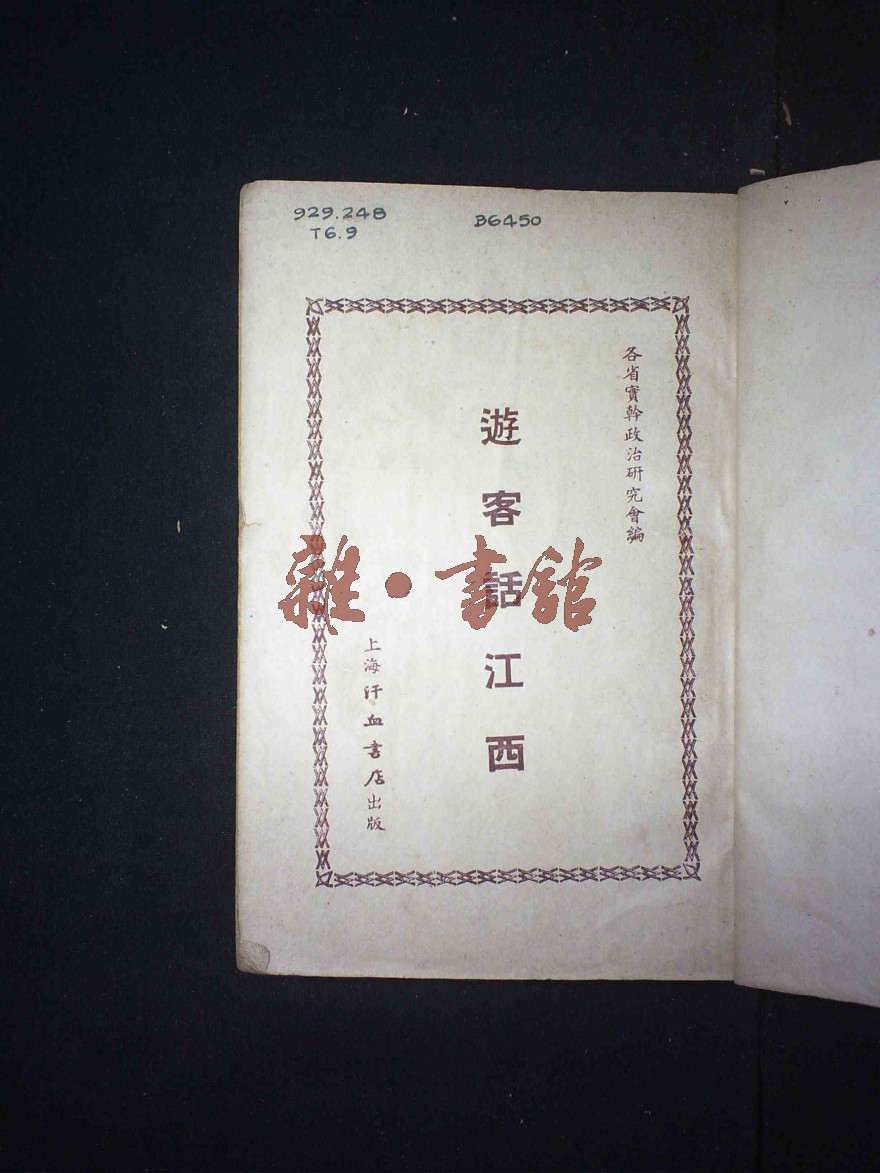 929.248
T6.9
B6450
各省實幹政治研究會編
遊客話江西
上海汗血書店出版
雜·書館